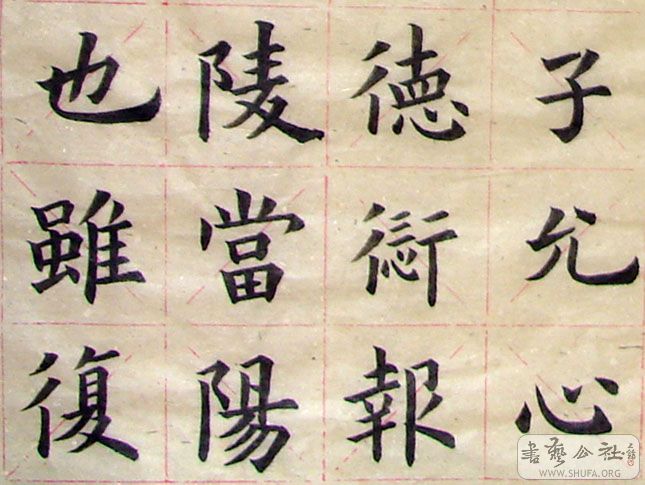 子允心
德衍報
陵當陽
也雖復
書藝公社
WWW.SHUFA.ORG